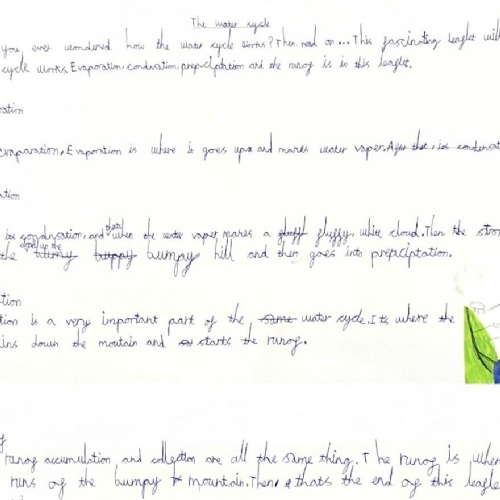 The water cycle
you ever wondered how the water cycle works? Then read on... This fascinating leaflet will
cycle works. Evaporation, condensation, prepciptation and the runof is in this leaflet.
ration
evaparation, Evaporation is where is goes up and marks water vaper. After that, its condensat
ation
its condensation, and thats when the water vaper makes a fluffy, white cloud. Then the stro
the cloud up the bumpy hill and then goes into prepciptation.
tion
tion is a very important part of the same water cycle. Its where the
ins down the moutain and starts the runof.
f
runof accumulation and collection are all the same thing. The runof is wher
runs of the bumpy mountain. Then thats the end of this leafle